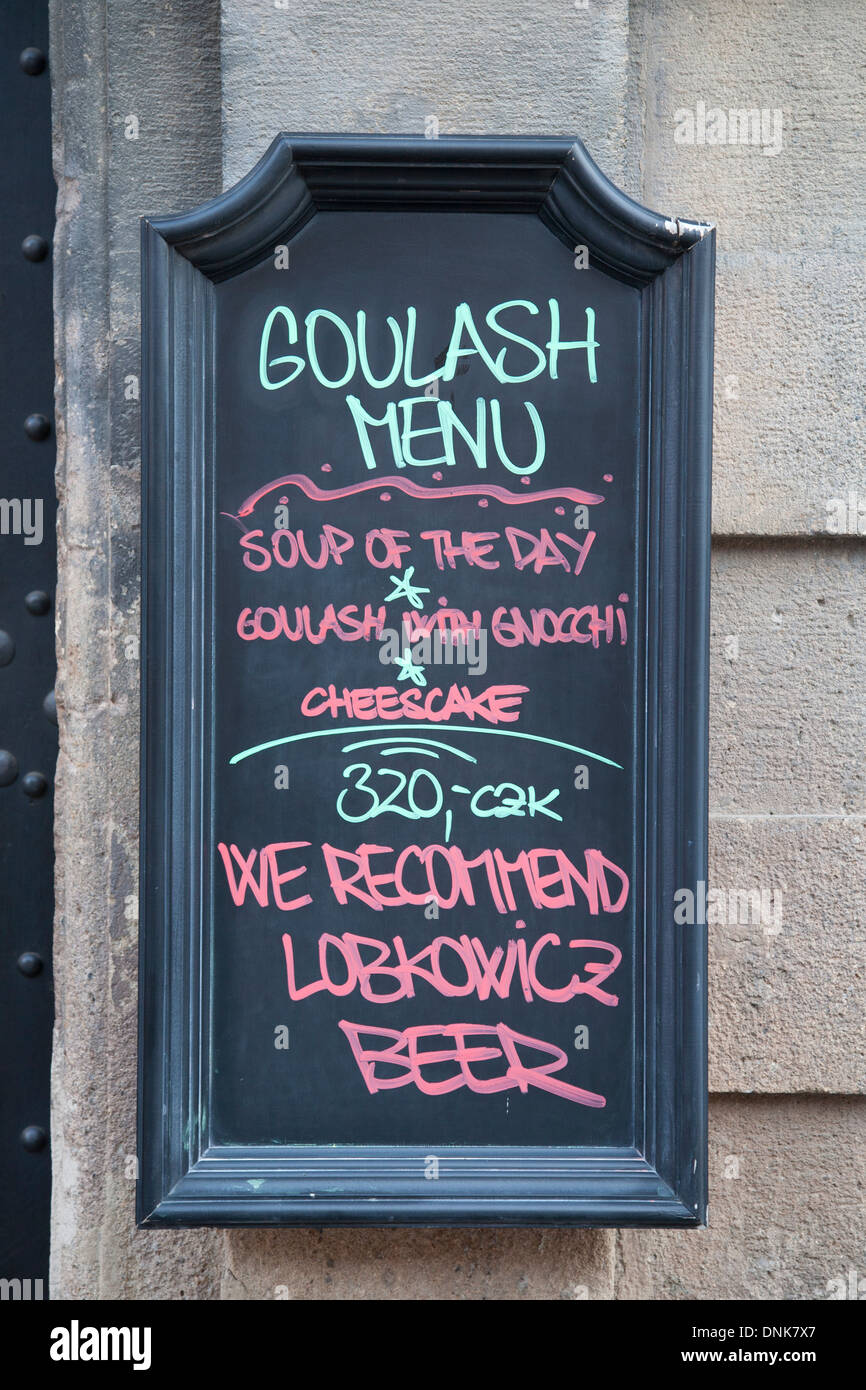 GOULASH
MENU
SOUP OF THE DAY
GOULASH WITH GNOCCHI
CHEESCAKE
320,-CZK
WE RECOMMEND
LOBKOWICZ
BEER
alamy
Image ID: DNK7X7
www.alamy.com